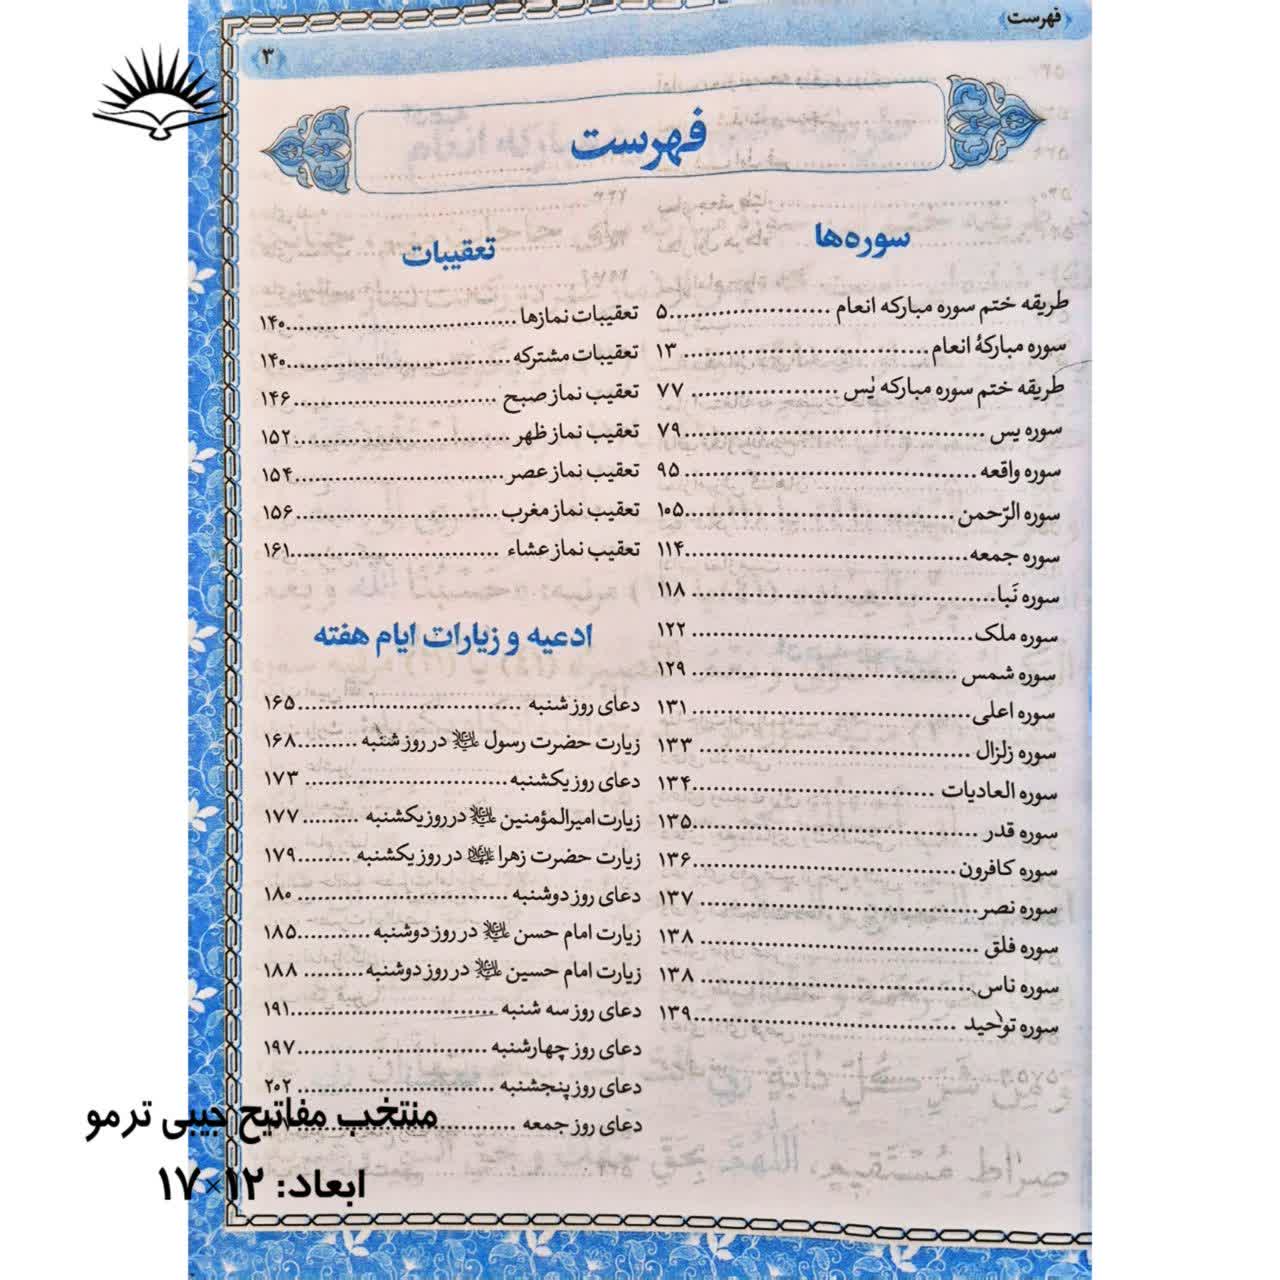 ﴿فهرست﴾
﴿۳﴾
فهرست
سوره‌ها
طریقه ختم سوره مبارکه انعام ......................۵
سوره مبارکهٔ انعام................................. ۱۳
طریقه ختم سوره مبارکه یٰس ................... ۷۷
سوره یس.......................................۷۹
سوره واقعه..................................... ۹۵
سوره الرّحمن...................................۱۰۵
سوره جمعه....................................۱۱۴
سوره نَبا....................................... ۱۱۸
سوره ملک..................................... ۱۲۲
سوره شمس ................................... ۱۲۹
سوره اعلی..................................... ۱۳۱
سوره زلزال ................................... ۱۳۳
سوره العادیات ................................۱۳۴
سوره قدر .....................................۱۳۵
سوره کافرون...................................۱۳۶
سوره نصر..................................... ۱۳۷
سوره فلق ..................................... ۱۳۸
سوره ناس..................................... ۱۳۸
سوره توحید ...................................۱۳۹
تعقیبات
تعقیبات نمازها ..................................۱۴۰
تعقیبات مشترکه..................................۱۴۰
تعقیب نماز صبح ............................... ۱۴۶
تعقیب نماز ظهر.................................۱۵۲
تعقیب نماز عصر.................................۱۵۴
تعقیب نماز مغرب ............................... ۱۵۶
تعقیب نماز عشاء ................................۱۶۱
ادعیه و زیارات ایام هفته
دعای روز شنبه ..................................۱۶۵
زیارت حضرت رسول ﷺ در روز شنبه .........۱۶۸
دعای روز یکشنبه............................... ۱۷۳
زیارت امیرالمؤمنین علیه‌السلام در روز یکشنبه ......... ۱۷۷
زیارت حضرت زهرا علیهاالسلام در روز یکشنبه ........۱۷۹
دعای روز دوشنبه ............................... ۱۸۰
زیارت امام حسن علیه‌السلام در روز دوشنبه...........۱۸۵
زیارت امام حسین علیه‌السلام در روز دوشنبه......... ۱۸۸
دعای روز سه شنبه ..............................۱۹۱
دعای روز چهارشنبه .............................۱۹۷
دعای روز پنجشنبه .............................. ۲۰۲
دعای روز جمعه
منتخب مفاتیح جیبی ترمو
ابعاد: ۱۲×۱۷